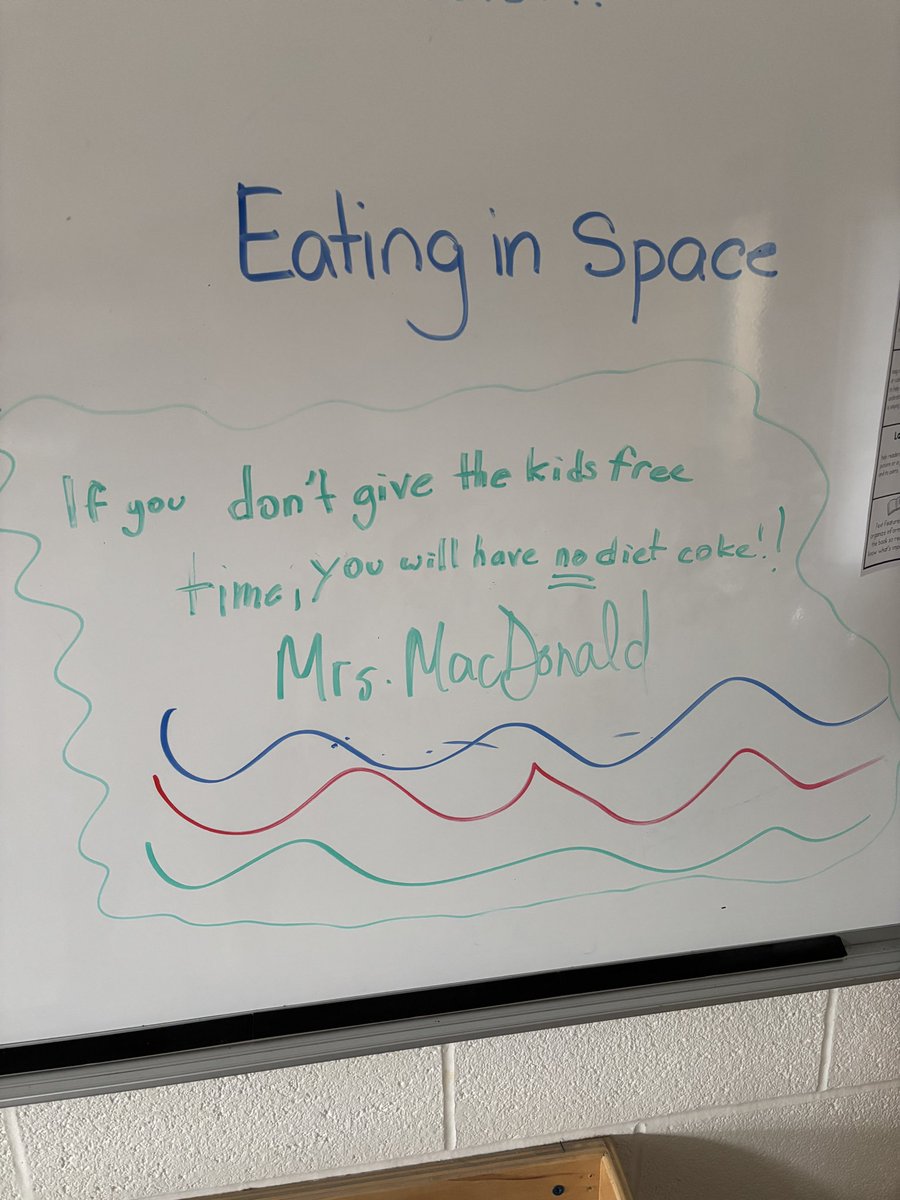 Eating in Space
If you don't give the kids free
time, you will have no diet coke!!
Mrs. MacDonald